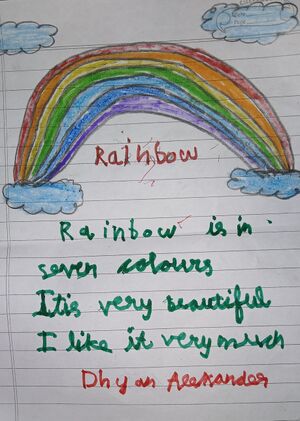 Rainbow
Rainbow is in
seven colours
Itis very beautiful
I like it very much
Dhyan Alexander